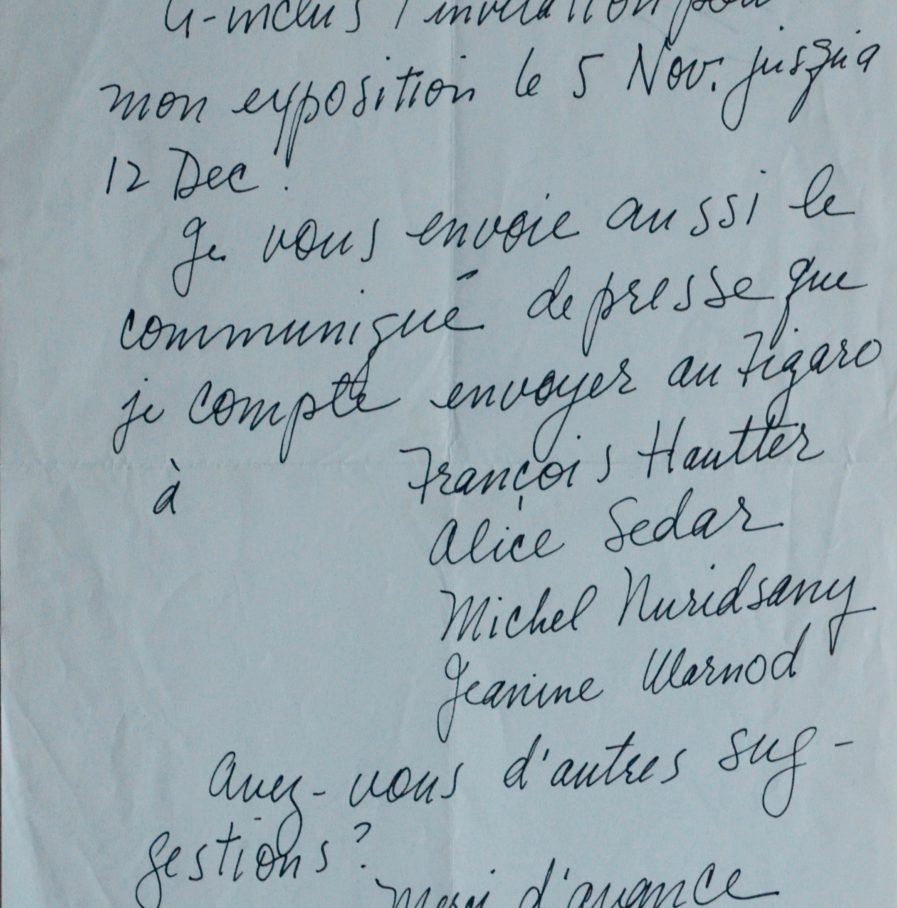 Ci-inclus l'invitation pour
mon exposition le 5 Nov. jusqu'a
12 Dec.
Je vous envoie aussi le
communiqué de presse que
je compte envoyer au Figaro
à François Hautter
Alice Sedar
Michel Nuridsany
Jeanine Warnod
Avez-vous d'autres sug-
gestions?
Merci d'avance